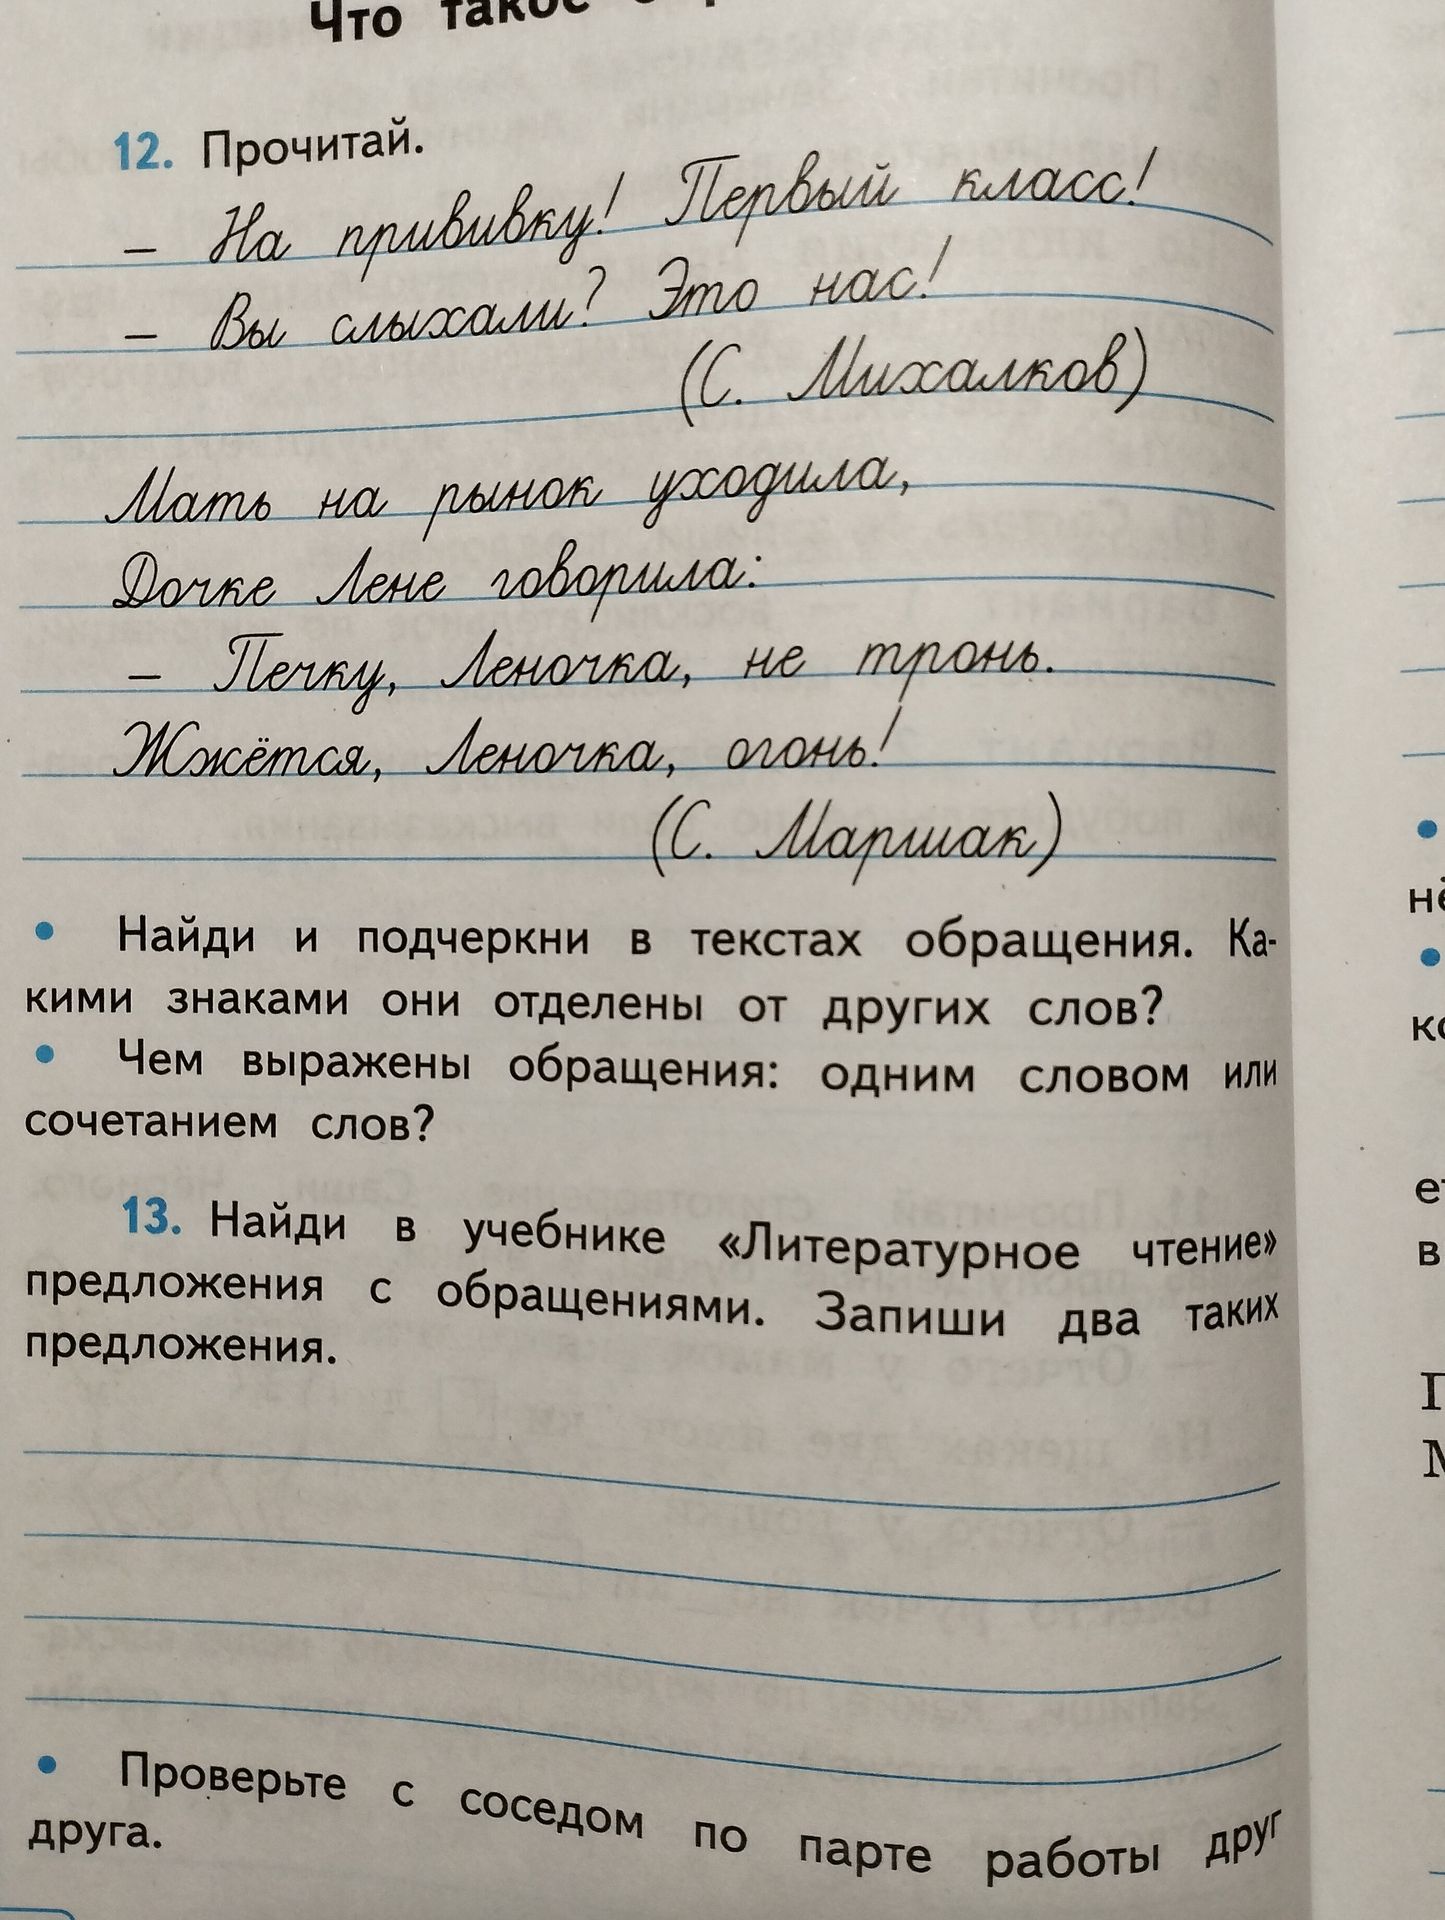 Что такое
12. Прочитай.
– На прививку! Первый класс!
– Вы слыхали? Это нас!
(С. Михалков)
Мать на рынок уходила,
Дочке Лене говорила:
– Печку, Леночка, не тронь.
Жжётся, Леночка, огонь!
(С. Маршак)
• Найди и подчеркни в текстах обращения. Ка-
кими знаками они отделены от других слов?
• Чем выражены обращения: одним словом или
сочетанием слов?
13. Найди в учебнике «Литературное чтение»
предложения с обращениями. Запиши два таких
предложения.
• Проверьте с соседом по парте работы друг
друга.